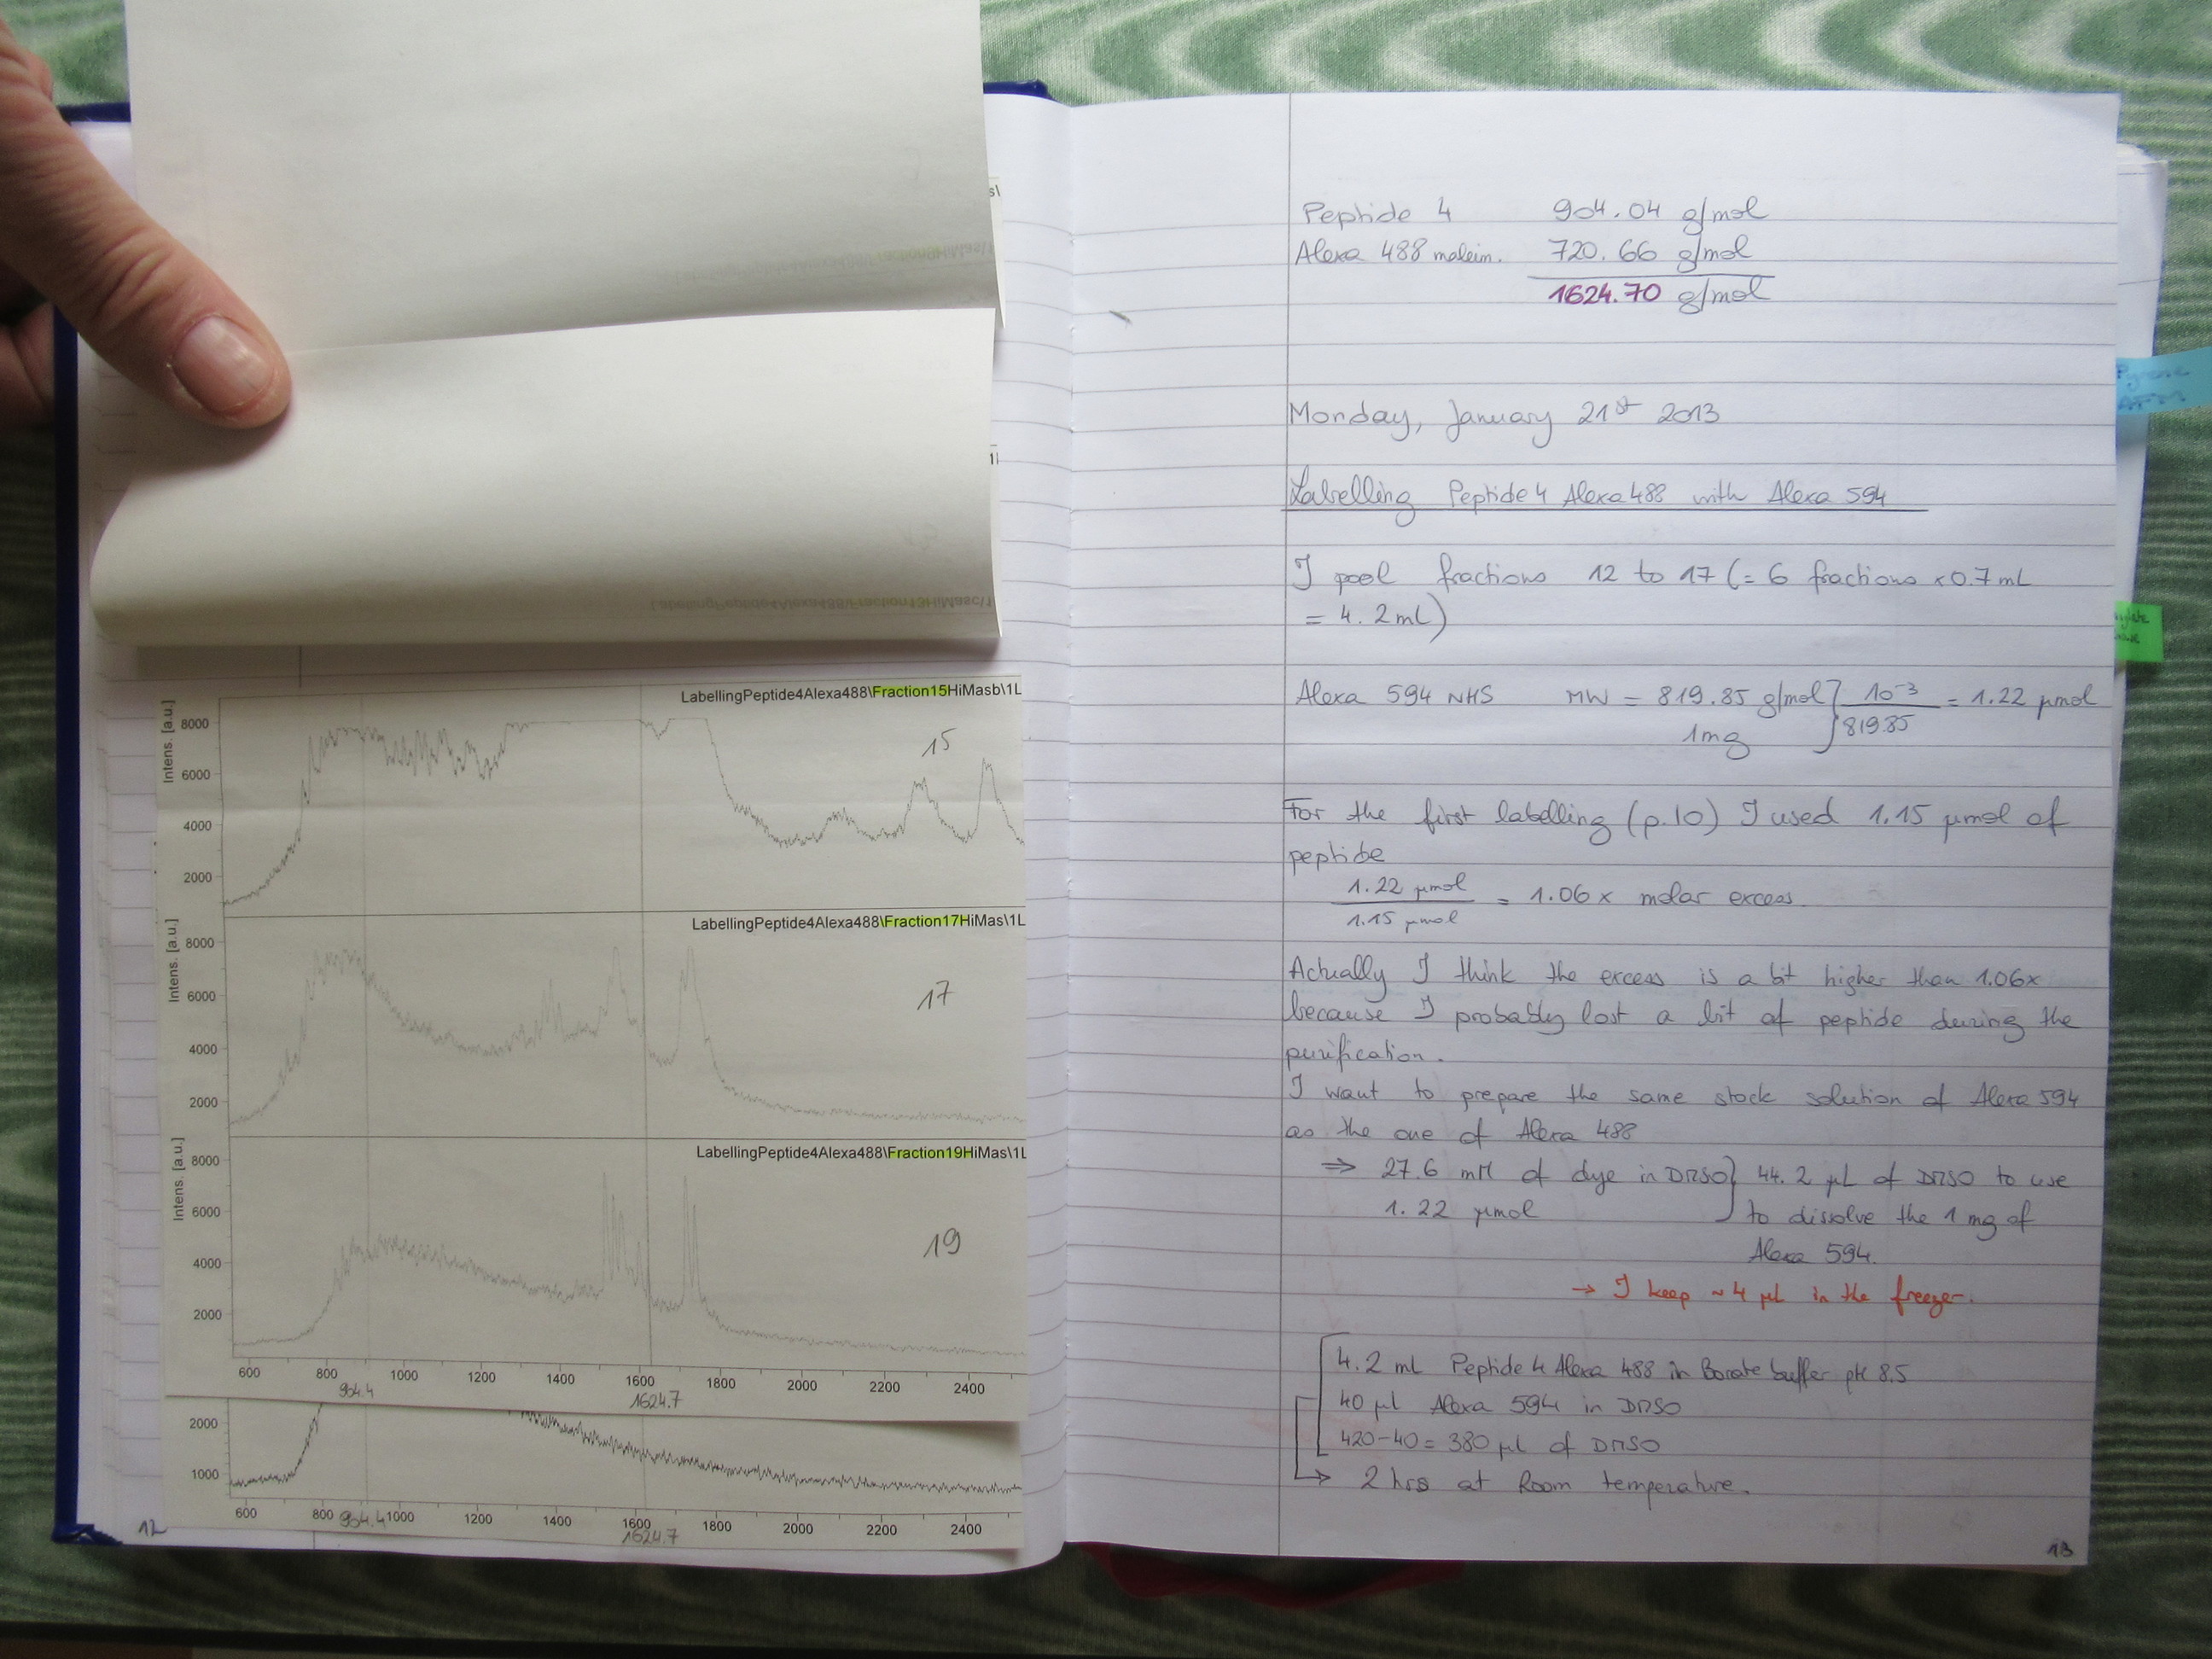 LabellingPeptide4Alexa488\Fraction15HiMasb\1L
Intens. [a.u.]
8000
6000
4000
2000
15
LabellingPeptide4Alexa488\Fraction17HiMas\1L
Intens. [a.u.]
8000
6000
4000
2000
17
LabellingPeptide4Alexa488\Fraction19HiMas\1L
Intens. [a.u.]
8000
6000
4000
2000
19
600 800 1000 1200 1400 1600 1800 2000 2200 2400
904.4 1624.7
2000
1000
600 800 1000 1200 1400 1600 1800 2000 2200 2400
904.4 1624.7
12
Peptide 4 904.04 g/mol
Alexa 488 maleim. 720.66 g/mol
1624.70 g/mol
Monday, January 21st 2013
Labelling Peptide 4 Alexa 488 with Alexa 594
I pool fractions 12 to 17 (= 6 fractions x 0.7 mL
= 4.2 mL)
Alexa 594 NHS MW = 819.85 g/mol } 10⁻³ = 1.22 µmol
1 mg 819.85
For the first labelling (p.10) I used 1.15 µmol of
peptide
1.22 µmol = 1.06 x molar excess.
1.15 µmol
Actually I think the excess is a bit higher than 1.06x
because I probably lost a bit of peptide during the
purification.
I want to prepare the same stock solution of Alexa 594
as the one of Alexa 488
⇒ 27.6 mM of dye in DMSO } 44.2 µL of DMSO to use
1.22 µmol to dissolve the 1 mg of
Alexa 594.
→ I keep ~ 4 µL in the freezer.
4.2 ml Peptide 4 Alexa 488 in Borate buffer pH 8.5
40 µl Alexa 594 in DMSO
420-40 = 380 µl of DMSO
→ 2 hrs at Room temperature.
13